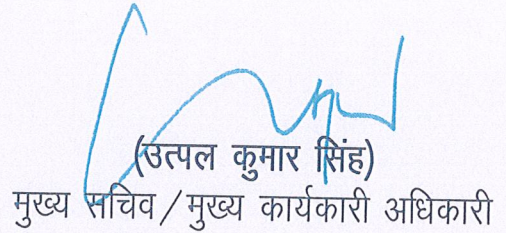 (उत्पल कुमार सिंह)
मुख्य सचिव/मुख्य कार्यकारी अधिकारी